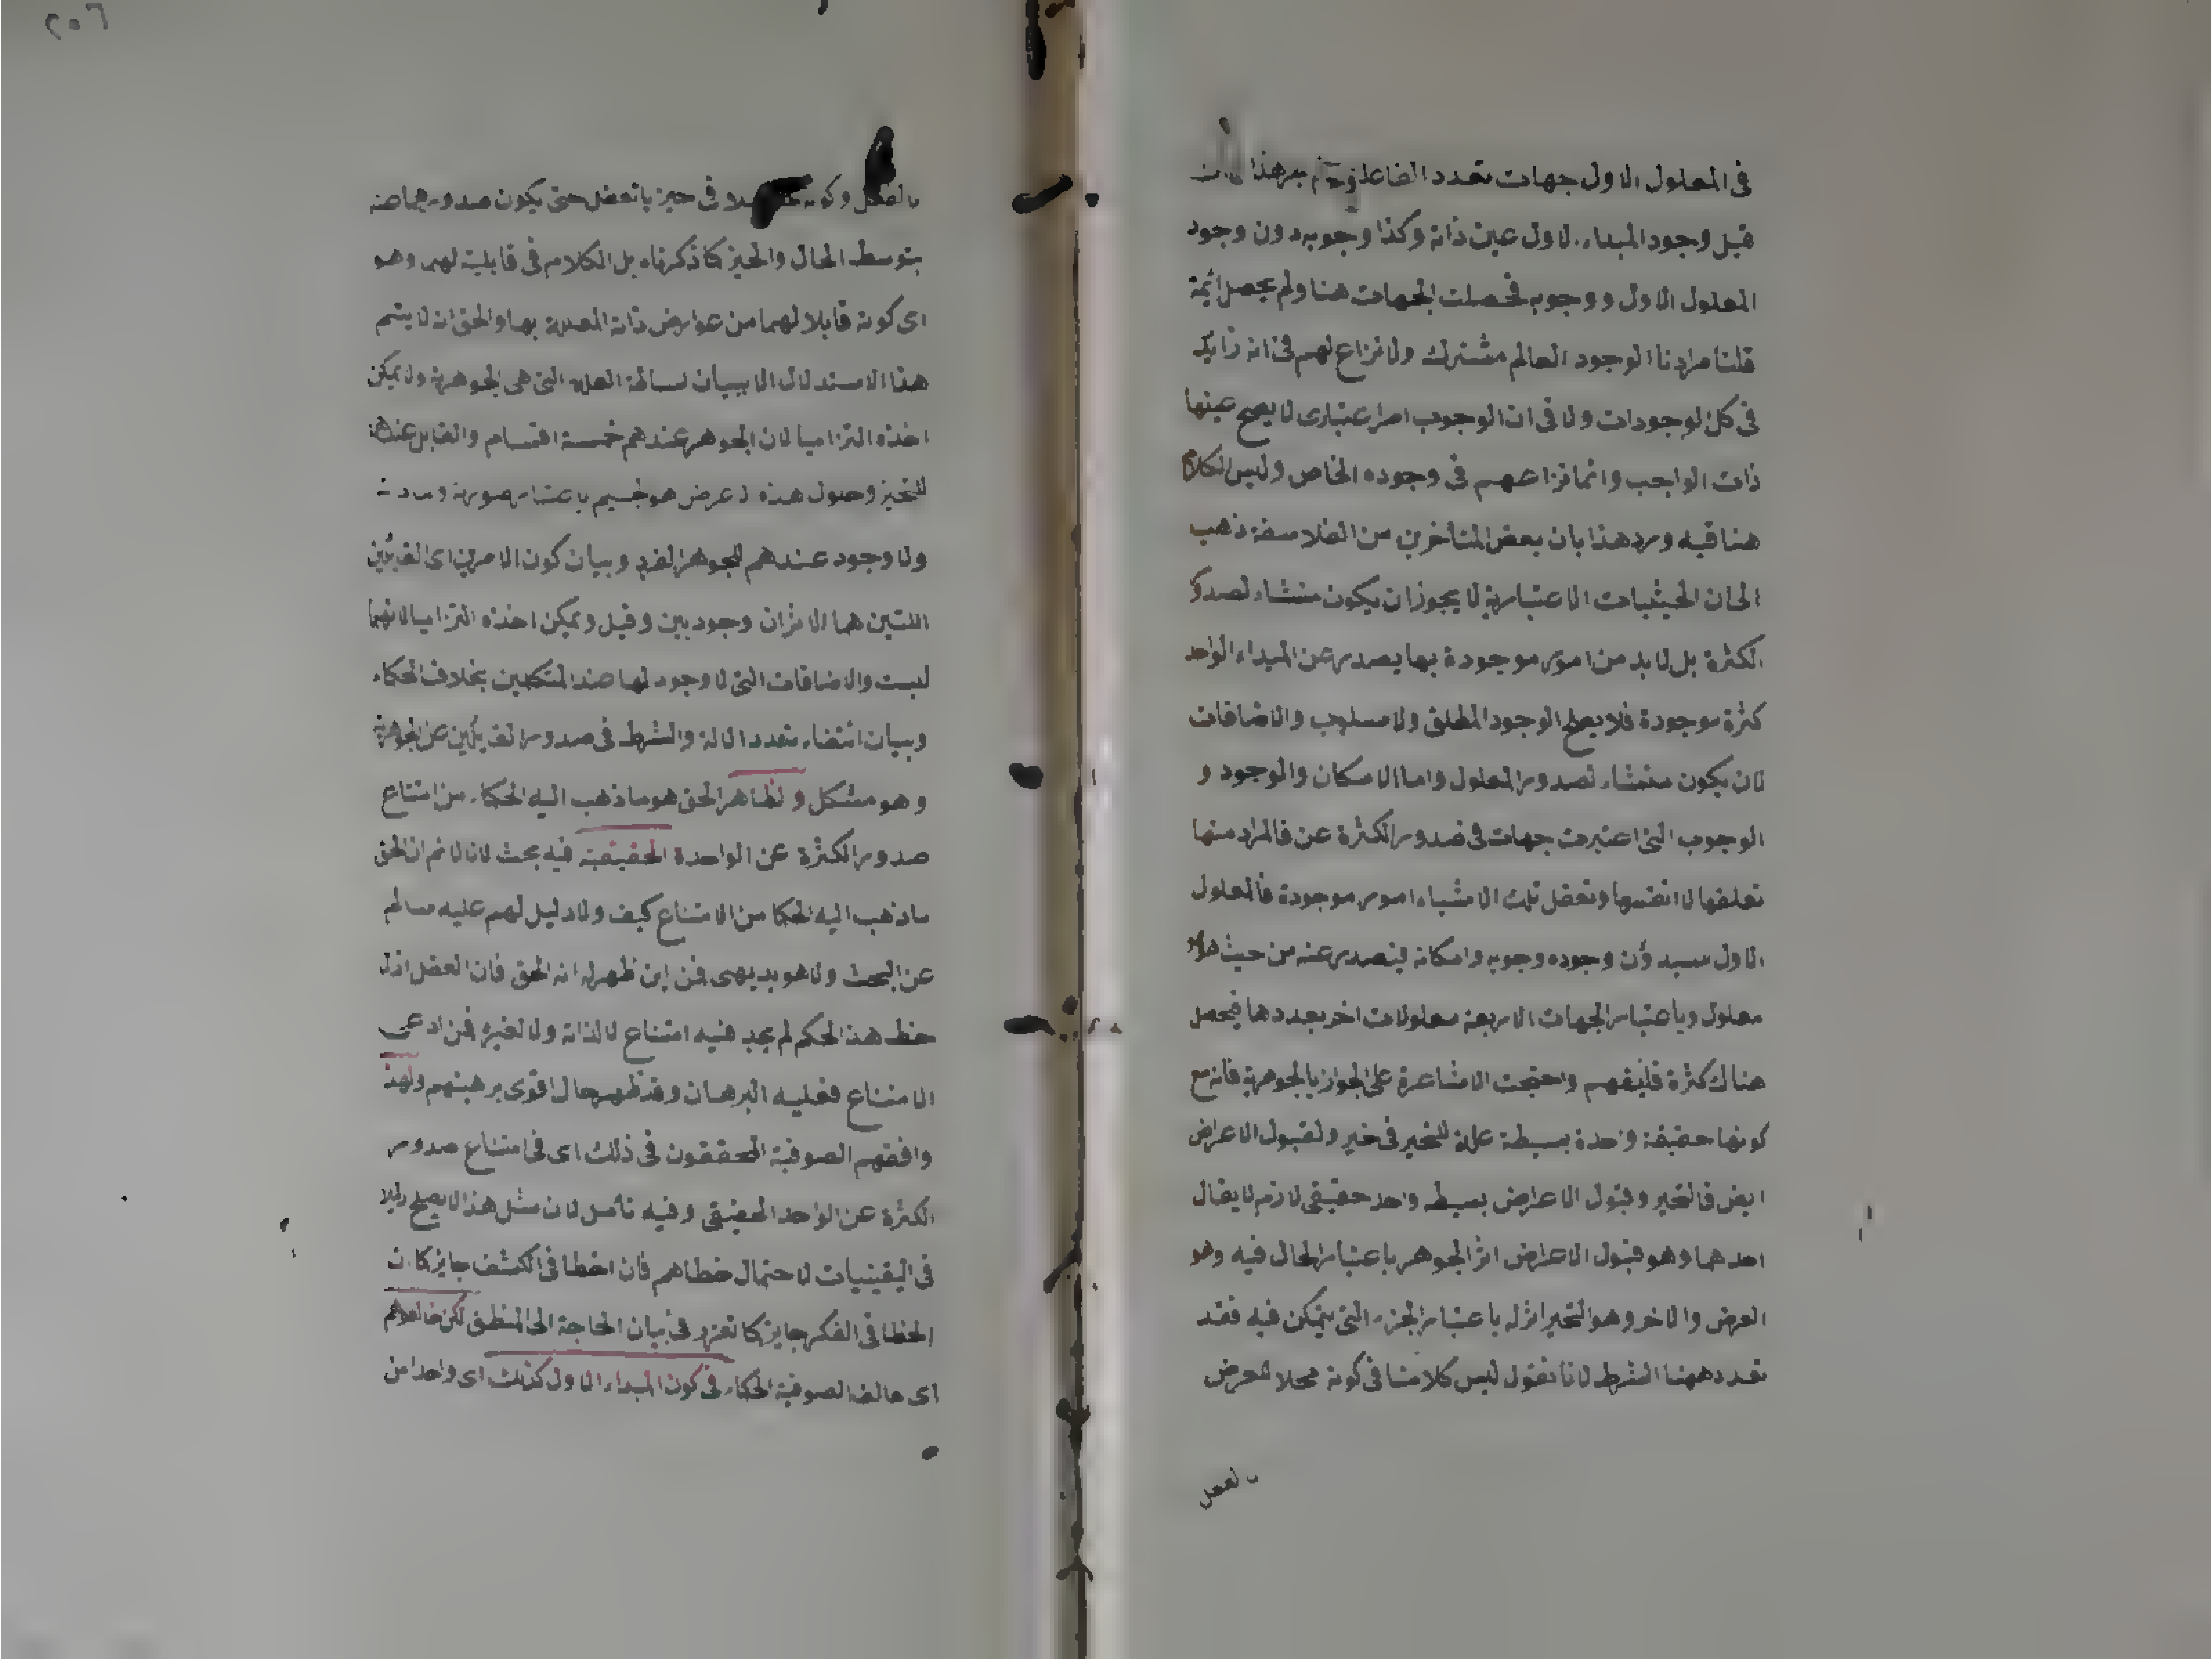 في المعلول الاول جهات تعدد الفاعل هذا
قبل وجود المبداء الاول عين ذاته وكذا وجوبه دون وجود
المعلول الاول ووجوبه فحصلت الجهات هنا ولم يحصل ثمة
قلنا مرادنا الوجود العالم مشترك ولا نزاع لهم في انه زايد
في كل الوجودات ولا في ان الوجوب امر اعتبارى لا يصح عينها
ذات الواجب وانما نزاعهم في وجوده الخاص وليس الكلام
هنا فيه ورد هذا بان بعض المتأخرين من الفلاسفة ذهب
الى ان الحيثيات الاعتبارية لا يجوز ان يكون منشاء لصدور
الكثرة بل لا بد من امور موجودة بها يصدر عن المبداء الواحد
كثرة موجودة فلا يصلح الوجود المطلق ولا سلوب والاضافات
لان يكون منشاء لصدور المعلول واما الامكان والوجود و
الوجوب التى اعتبرت جهات في صدور الكثرة عن فالمراد منها
تعلقها لا انفسها وتعقل تلك الاشياء امور موجودة فالمعلول
الاول وجوده وجوبه وامكانه فيصدر عنه من حيث
معلول وباعتبار الجهات الاربعة معلولات اخر بعددها فيحصل
هناك كثرة فليفهم واحتجت الاشاعرة على الجواز بالجوهرية فانه مع
كونها حقيقة واحدة بسيطة علة للتحيز في حيز ولقبول الاعراض
ايض فالتحيز وقبول الاعراض بسيط واحد حقيقي لازم لا يقال
احدهما وهو قبول الاعراض اثر الجوهر باعتبار الحال فيه وهو
العرض والاخر وهو التحيز اثر له باعتبار الجزء التى يتمكن فيه فقد
تعدد ههنا الشرط لانا نقول ليس كلامنا في كونه محلا للعرض
بالفعل
٢٠٦
بالفعل وكونه في حيز بالفعل حتى يكون صدورهما عنه
بتوسط الحال والحيز كما ذكرناه بل الكلام في قابليته لهما وهو
اى كونه قابلا لهما من عوارض ذاته المعدة بها والحق ان لا يتم
هذا الاستدلال الا ببيان بساطة العلة التى هى الجوهرية ولا يمكن
اخذه الزاميا لان الجوهر عندهم خمسة اقسام والقابل عندهم
للتحيز وحلول هذه لاعرض هو لجسيم باعتبار صورته ومادته
ولا وجود عندهم للجوهر الفرد وبيان كون الامرين اى القابليتين
اللتين هما الاثران وجوديين وقيل ويمكن اخذه الزاميا لانهما
ليست والاضافات التى لا وجود لها عند المتكلمين بخلاف الحكاء
وبيان انتفاء تعدد الالة والشرط في صدور القابليتين عن الجوهرية
وهو مشكل و لظاهر الحق هو ما ذهب اليه الحكاء من امتناع
صدور الكثرة عن الواحدة الحقيقية فيه بحث لانا لانم ان الحق
ما ذهب اليه الحكا من الامتناع كيف ولا دليل لهم عليه سالم
عن البحث ولا هو بديهى فمن اين ظهر له انه الحق فان العقل اذا
حظ هذا الحكم لم يجد فيه امتناع لا لذاته ولا لغيره فمن ادعى
الامتناع فعليه البرهان وقد ظهر حال اقوى برهينهم ولهذا
وافقهم الصوفية المحققون في ذلك اى في امتناع صدور
الكثرة عن الواحد الحقيقي وفيه تأمل لان مثل هذا لا يصلح دليلا
في اليقينيات لاحتمال خطاهم فان اخطا في الكشف جايز كان
الخطا في الفكر جايز كما تقرر في بيان الحاجة الى المنطق لكن خالفوهم
اى خالف الصوفية الحكاء في كون المبداء الاول كذلك اى واحدا من